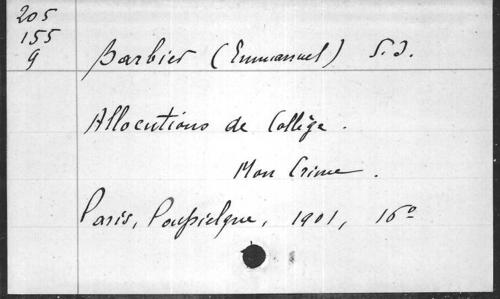 205
155
9
Barbier (Emmanuel) S.J.
Allocutions de Collège.
Mon Crime.
Paris, Poussielgue, 1901, 16º